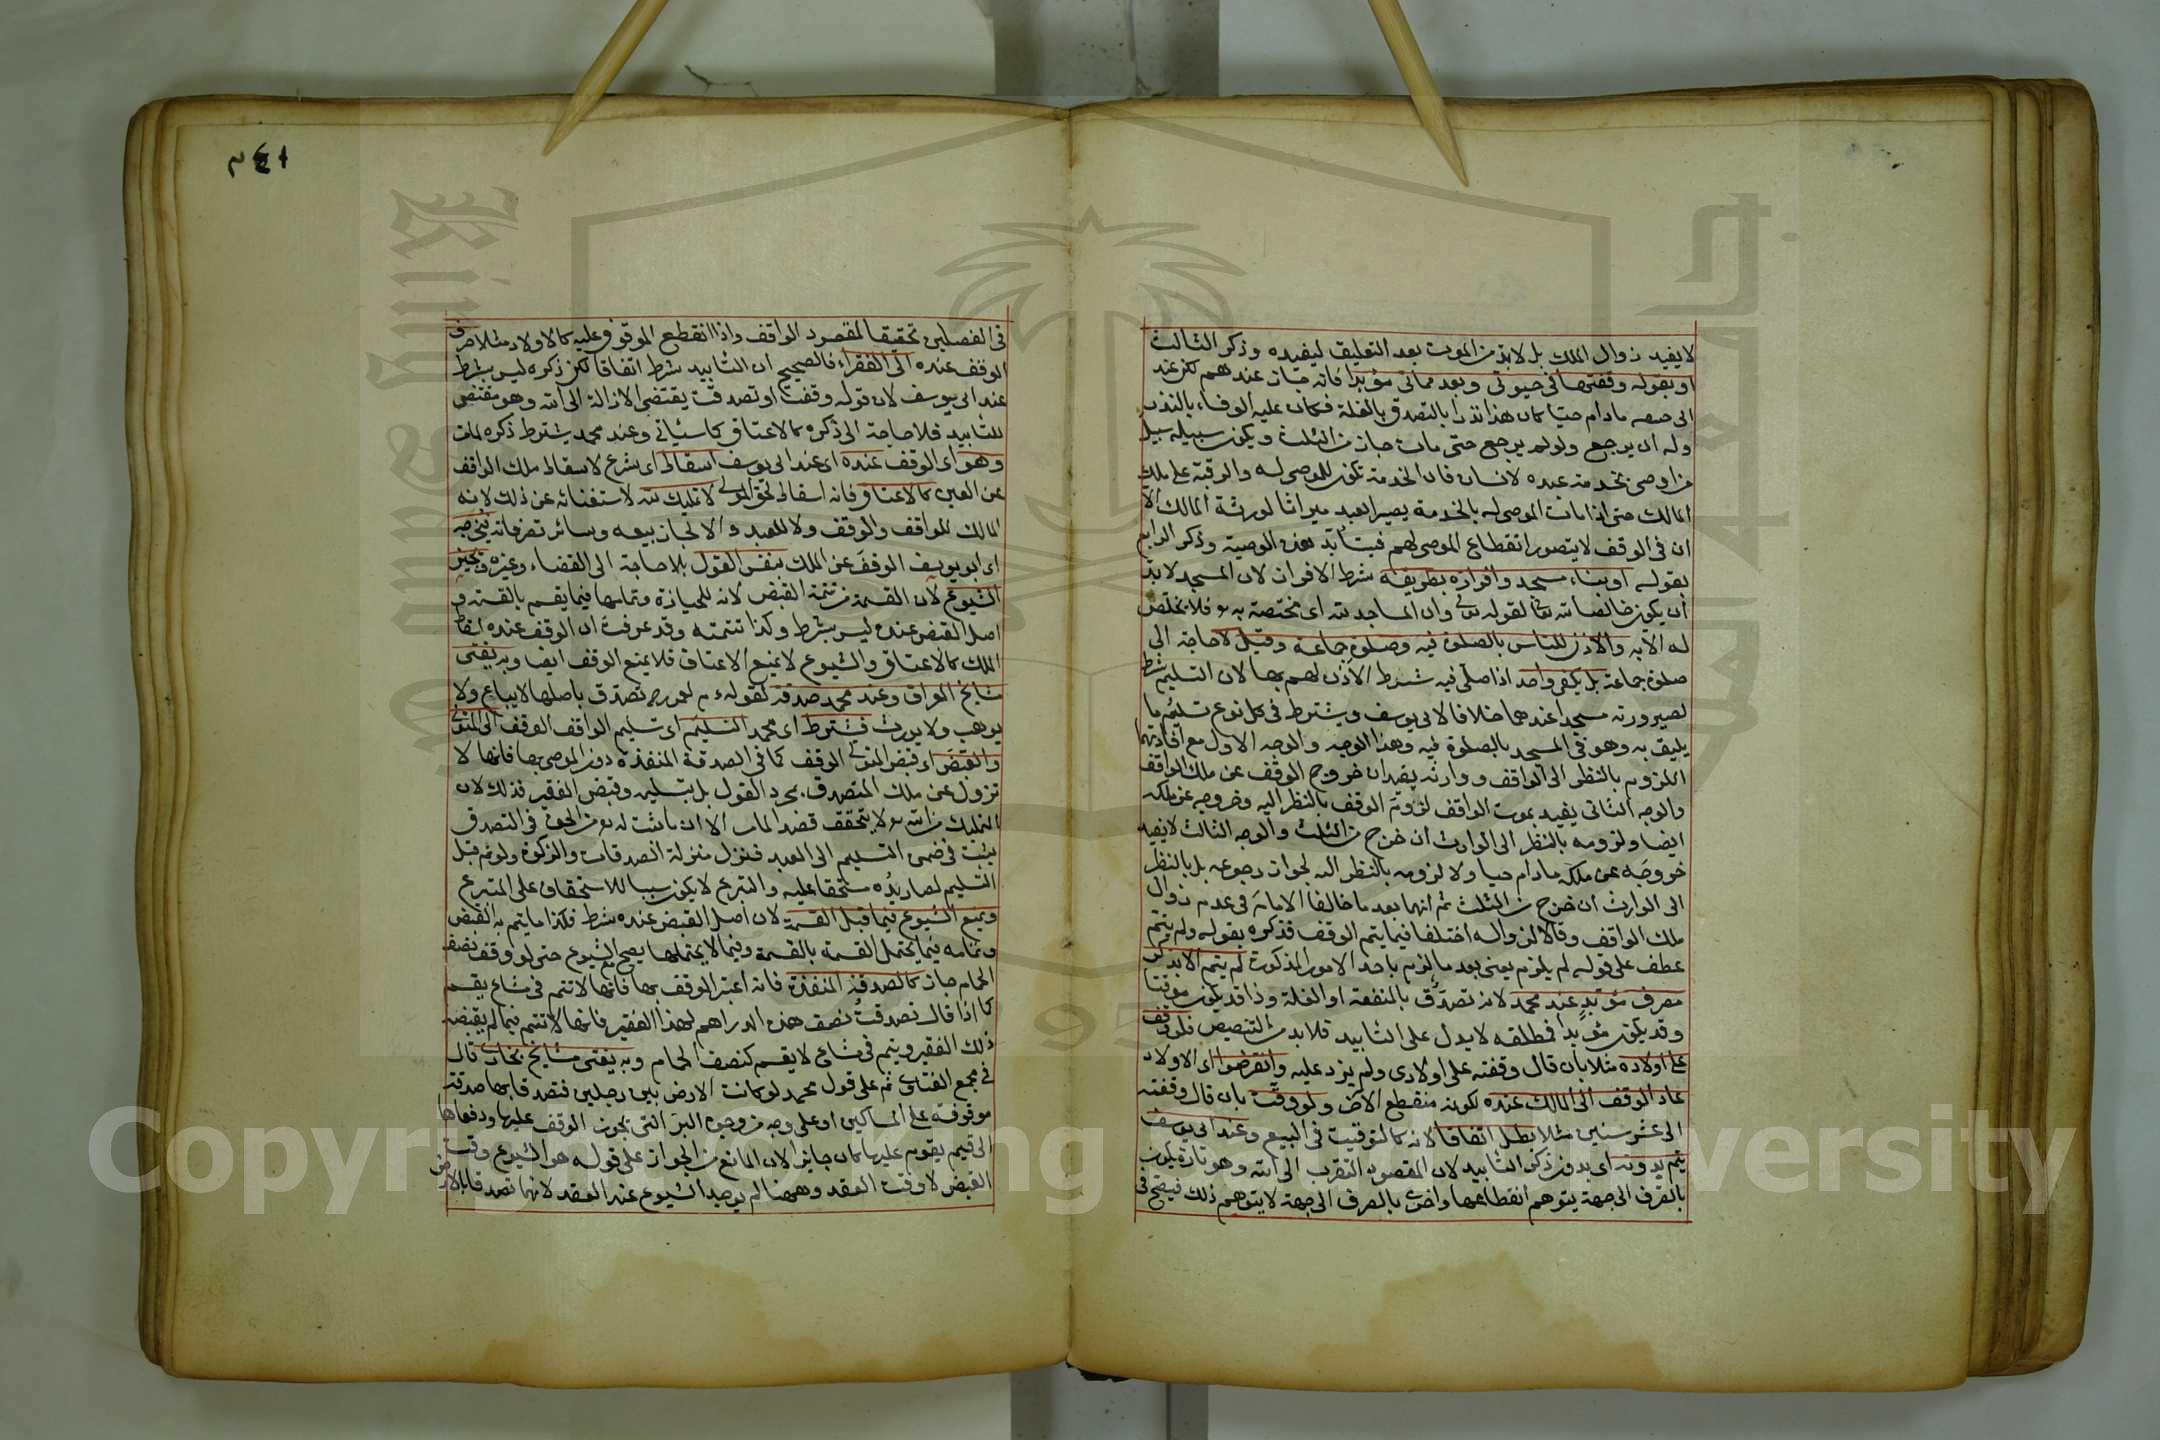 لا يفيد زوال الملك بل لا بد من الموت بعد التعليق ليفيده وذكر الثالث
او بقوله وقفتها في حيوتي وبعد مماتي مؤبدا فانه جائز عندهم لكن عند
ابى حنيفه مادام حيا كان هذا نذرا بالتصدق بالغلة فكان عليه الوفاء بالنذر
وله ان يرجع ولو لم يرجع حتى مات جاز من الثلث ويكون سبيله سبيل
من اوصى بخدمة عبده لانسان فان الخدمة تكون للموصى له والرقبة على ملك
المالك حتى اذا مات الموصى له بالخدمة يصير العبد ميراثا لورثة المالك الا
ان فى الوقف لا يتصور انقطاع الموصى لهم فيتأبد هذه الوصية وذكر الرابع
بقوله او بناء مسجد وافرازه بطريقه شرط الافراز لان المسجد لا بد
أن يكون خالصا لله تعالى لقوله تعالى وان المساجد لله اى مختصة به تع فلا يخلص
له الا به والاذن للناس بالصلوة فيه وصلوة جماعة وقيل لا حاجة الى
صلوة جماعة بل يكفى واحد اذا صلى فيه شرط الاذن لهم بها لان التسليم شرط
لصيرورته مسجدا عندهما خلافا لابى يوسف ويشترط في كل نوع تسليم ما
يليق به وهو فى المسجد بالصلوة فيه وهذا الوجه والوجه الاول مع افادتهما
اللزوم بالنظر الى الواقف ووارثه يفيدان خروج الوقف عن ملك الواقف
والوجه الثانى يفيد بموت الواقف لزوم الوقف بالنظر اليه وخروجه عن ملكه
ايضا ولزومه بالنظر الى الوارث ان خرج من الثلث والوجه الثالث لا يفيد
خروجه عن ملكه مادام حيا ولا لزومه بالنظر اليه لجواز رجوعه بل بالنظر
الى الوارث ان خرج من الثلث ثم انهما بعد ما خالفا الامام فى عدم زوال
ملك الواقف وقالا بزواله اختلفا فيما يتم الوقف فذكره بقوله ولم يتم
عطف على قوله لم يلزم يعنى بعد ما لزم باحد الامور المذكورة لم يتم الا بذكر
مصرف مؤبد عند محمد لانه تصدق بالمنفعة او الغلة وذا قد يكون موقتا
وقد يكون مؤبدا فمطلقه لا يدل على التابيد فلا بد من التنصيص فلو وقف
على اولاده مثلا بان قال وقفته على اولادى ولم يزد عليه وانقرضوا اى الاولاد
عاد الوقف الى المالك عنده لكونه منقطع الآخر ولو وقت بان قال وقفته
الى عشر سنين مثلا بطل اتفاقا لانه كالتوقيت فى البيع وعند ابى يوسف
يتم بدونه اى بدون ذكر التابيد لان المقصود التقرب الى الله وهو تارة يكون
بالصرف الى جهة يتوهم انقطاعها واخرى بالصرف الى جهة لا يتوهم ذلك فيصح فى
٢٤١
فى الفصلين تحقيقا لمقصود الواقف واذا انقطع الموقوف عليه كالاولاد مثلا صرف
الوقف عنده الى الفقراء فالصحيح ان التابيد شرط اتفاقا لكن ذكره ليس بشرط
عند ابى يوسف لان قوله وقفت او تصدقت يقتضى الازالة الى الله وهو مقتضى
للتابيد فلا حاجة الى ذكره كالاعتاق كما سيأتى وعند محمد يشترط ذكره لما مر
وهو اى الوقف عنده اى عند ابى يوسف اسقاط اى شرع لاسقاط ملك الواقف
عن العين كالاعتاق فانه اسقاط لحق المولى لا تمليك لله لاستغنائه عن ذلك لانه
المالك للواقف والوقف ولا للعبد والا لجاز بيعه وسائر تصرفاته
اى ابو يوسف الوقف عن الملك بنفس القول بلا حاجة الى القضاء وغيره ويجيز
الشيوع لان القسمة من تتمة القبض لانه للحيازة وتمامها فيما يقسم بالقسمة و
اصل القبض عنده ليس بشرط وكذا تتمته وقد عرفت ان الوقف عنده اسقاط
الملك كالاعتاق والشيوع لا يمنع الاعتاق فلا يمنع الوقف ايضا وبه يفتى
مشايخ العراق وعند محمد صدقة لقوله ءم لعمر رضه تصدق باصلها لا يباع ولا
يوهب ولا يورث فيشترط اى محمد التسليم اى تسليم الواقف الوقف الى المتولى
والقبض اى قبض المتولى الوقف كما فى الصدقة المنفذة دون الموصى بها فانها لا
تزول عن ملك المتصدق بمجرد القول بل بتسليمه وقبض الفقير فذلك لان
التمليك من الله تع لا يتحقق قصدا لما مر الا ان ما ثبت له تع من الحق فى التصدق
يثبت فى ضمن التسليم الى العبد فنزل منزلة الصدقات والزكوة ولو تم قبل
التسليم لصار يده مستحقا عليه والتبرع لا يكون سببا للاستحقاق على المتبرع
ويمنع الشيوع فيما قبل القسمة لان اصل القبض عنده شرط فكذا ما يتم به القبض
وتمامه فيما يحتمل القسمة بالقسمة وفيما لا يحتملها يصح مع الشيوع حتى لو وقف نصف
الحمام جاز كالصدقة المنفذة فانه اعتبر الوقف بها فانها لا تتم فى مشاع يقسم
كما اذا قال تصدقت نصف هذه الدراهم لهذا الفقير فانها لا تتم فيما لم يقبضه
ذلك الفقير ويتم فى مشاع لا يقسم كنصف الحمام وبه يفتى مشايخ بخارى قال
فى مجمع الفتاوى ثم على قول محمد لو كانت الارض بين رجلين فتصدقا بها صدقة
موقوفة على المساكين او على وجه من وجوه البر التى يجوز الوقف عليها ودفعاها
الى قيم يقوم عليها كان جايزا لان المانع من الجواز على قوله هو الشيوع وقت
القبض لا وقت العقد وههنا لم يوجد الشيوع عند العقد لانهما تصدقا بالارض
Copyright © King Saud University